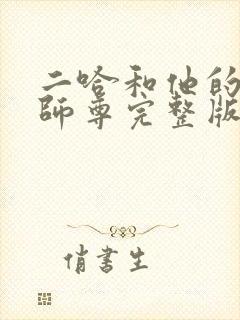 二哈和他的
師尊完整版
俏書生